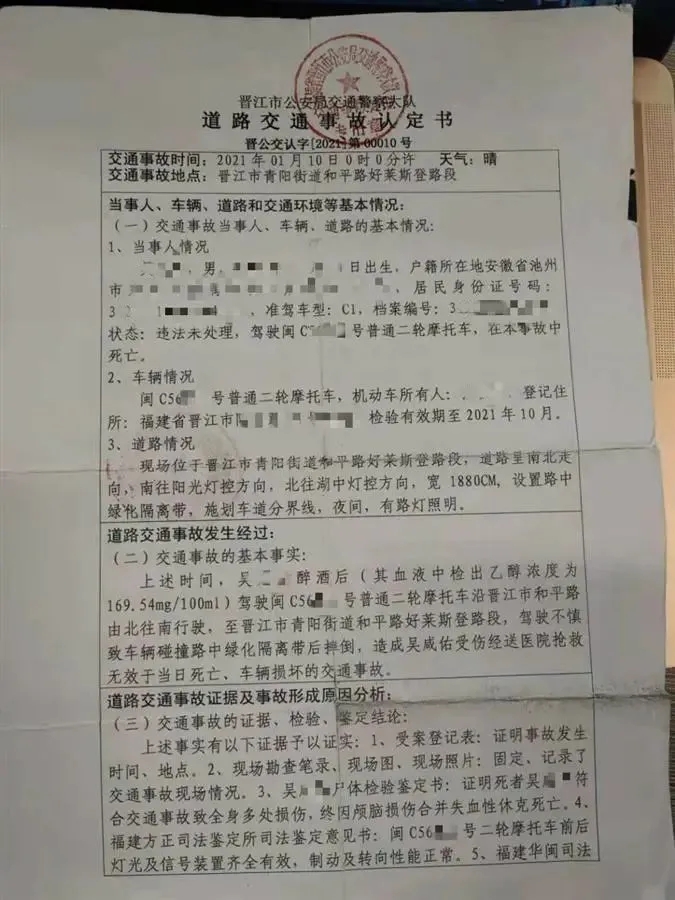 晋江市公安局交通警察大队
道路交通事故认定书
晋公交认字[2021]第00010号
交通事故时间：2021年01月10日0时0分许 天气：晴
交通事故地点：晋江市青阳街道和平路好莱斯登路段
当事人、车辆、道路和交通环境等基本情况：
（一）交通事故当事人、车辆、道路的基本情况：
1、当事人情况
男，日出生，户籍所在地安徽省池州
市，居民身份证号码：
3，准驾车型：C1，档案编号：3
状态：违法未处理，驾驶闽C号普通二轮摩托车，在本事故中
死亡。
2、车辆情况
闽C56号普通二轮摩托车，机动车所有人：登记住
所：福建省晋江市号 检验有效期至2021年10月。
3、道路情况
现场位于晋江市青阳街道和平路好莱斯登路段，道路呈南北走
向，南往阳光灯控方向，北往湖中灯控方向，宽1880CM，设置路中
绿化隔离带，施划车道分界线，夜间，有路灯照明。
道路交通事故发生经过：
（二）交通事故的基本事实：
上述时间，吴醉酒后（其血液中检出乙醇浓度为
169.54mg/100ml）驾驶闽C56号普通二轮摩托车沿晋江市和平路
由北往南行驶，至晋江市青阳街道和平路好莱斯登路段，驾驶不慎
致车辆碰撞路中绿化隔离带后摔倒，造成吴威佑受伤经送医院抢救
无效于当日死亡、车辆损坏的交通事故。
道路交通事故证据及事故形成原因分析：
（三）交通事故的证据、检验、鉴定结论：
上述事实有以下证据予以证实：1、受案登记表：证明事故发生
时间、地点。2、现场勘查笔录、现场图、现场照片：固定、记录了
交通事故现场情况。3、吴尸体检验鉴定书：证明死者吴符
合交通事故致全身多处损伤，终因颅脑损伤合并失血性休克死亡。4、
福建方正司法鉴定所司法鉴定意见书：闽C56号二轮摩托车前后
灯光及信号装置齐全有效，制动及转向性能正常。5、福建华闽司法